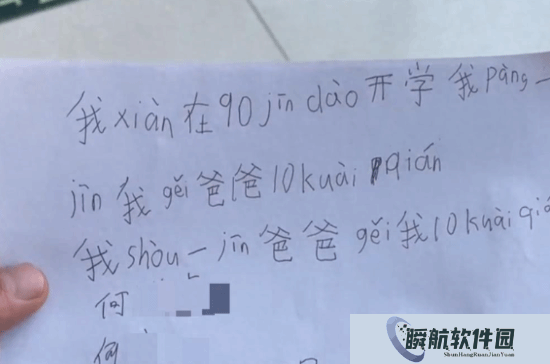 我xiàn在90jīn dào开学我pàng一
jīn我gěi爸爸10kuài qián
我shòu一jīn爸爸gěi我10kuài qiá
何
何
瞬航软件园
ShunHangRuanJianYuan